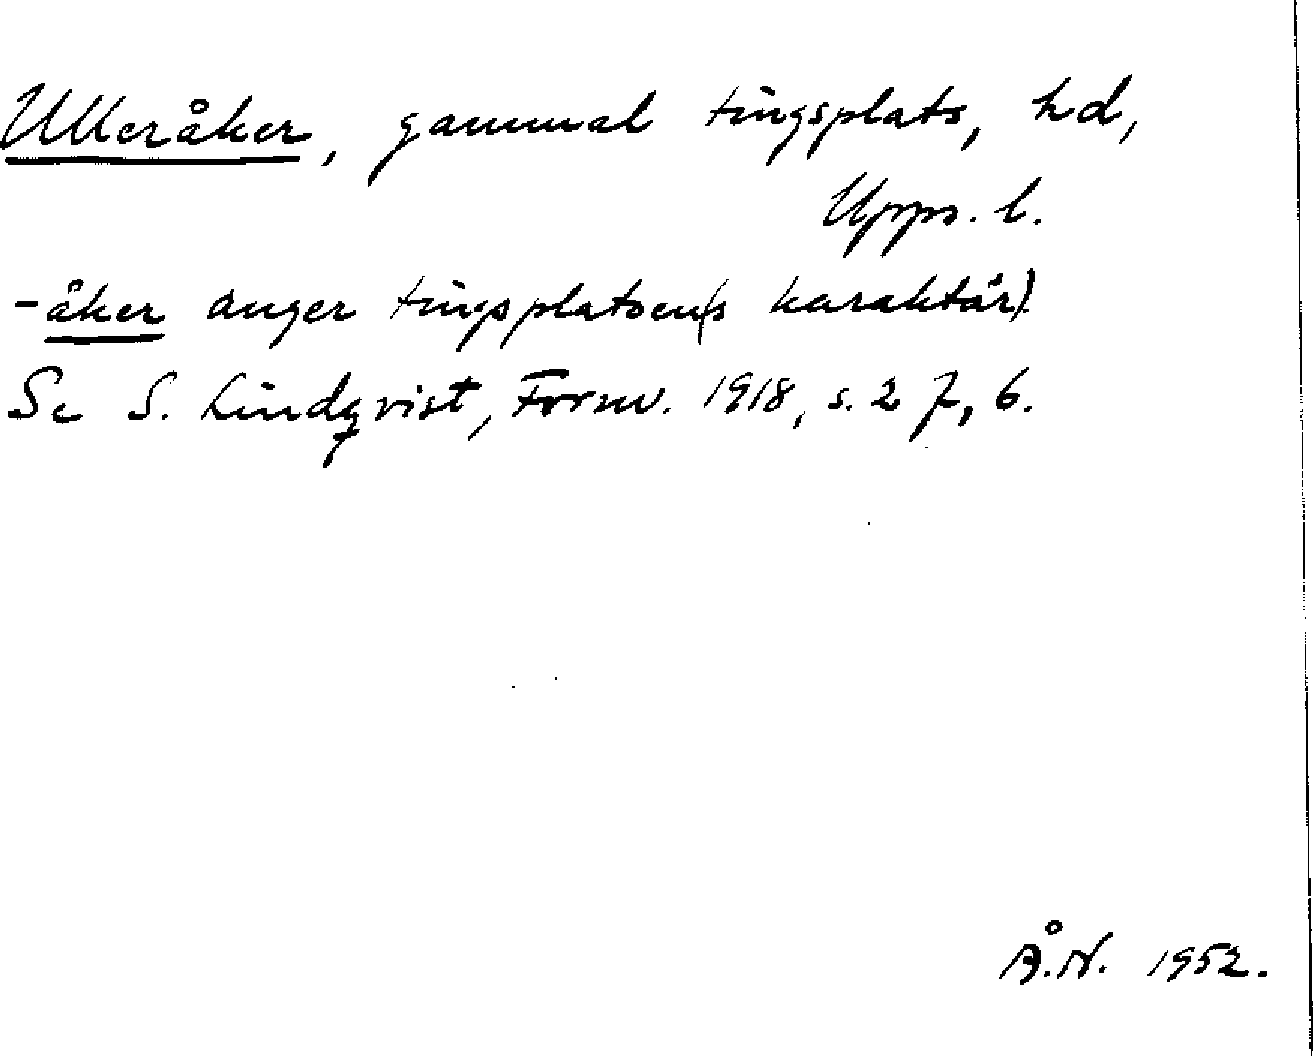 Ulleråker, gammal tingsplats, hd,
Upps. l.
-åker anger tingsplatsen(s karaktär).
Se S. Lindqvist, Fornv. 1918, s. 2 f, 6.
Å.N. 1952.